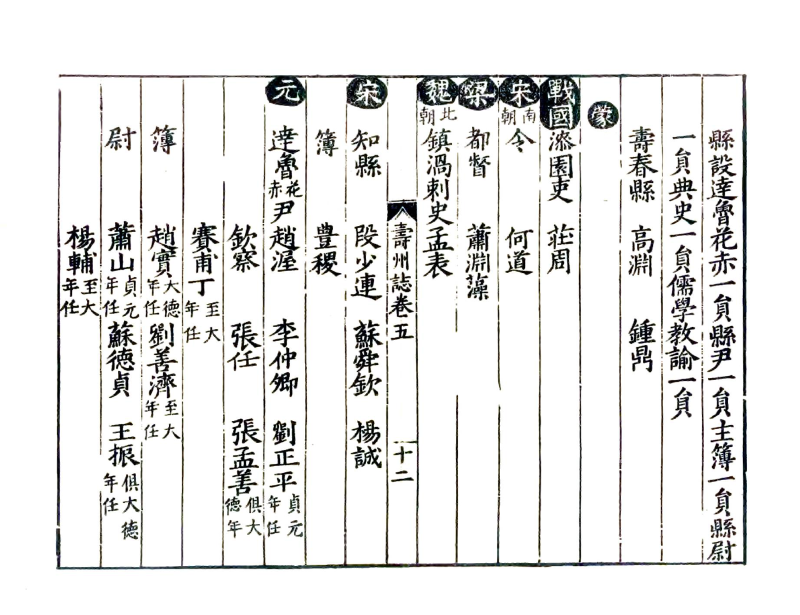 縣設達魯花赤一貟縣尹一貟主簿一貟縣尉
一貟典史一貟儒學教諭一貟
壽春縣 高淵 鍾鼎
蒙
戰國 漆園吏 莊周
宋 南朝 令 何道
梁 都督 蕭淵藻
魏 北朝 鎮渦刺史孟表
壽州誌卷五 十二
宋 知縣 段少連 蘇舜欽 楊誠
簿 豐稷
元 達魯花赤 尹趙渥 李仲卿 劉正平 貞元年任
欽察 張任 張孟善 俱大德年
賽甫丁 至大年任
簿 趙實 大德年任 劉善濟 至大年任
尉 蕭山 貞元年任 蘇德貞 王振 俱大德年任
楊輔 至大年任